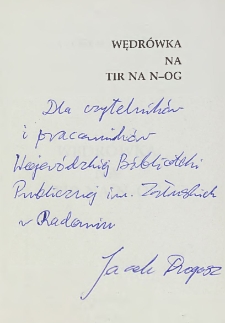 WĘDRÓWKA
NA
TIR NA N–OG
Dla czytelników
i pracowników
Wojewódzkiej Biblioteki
Publicznej im. Załuskich
w Radomiu
Jacek Drogosz